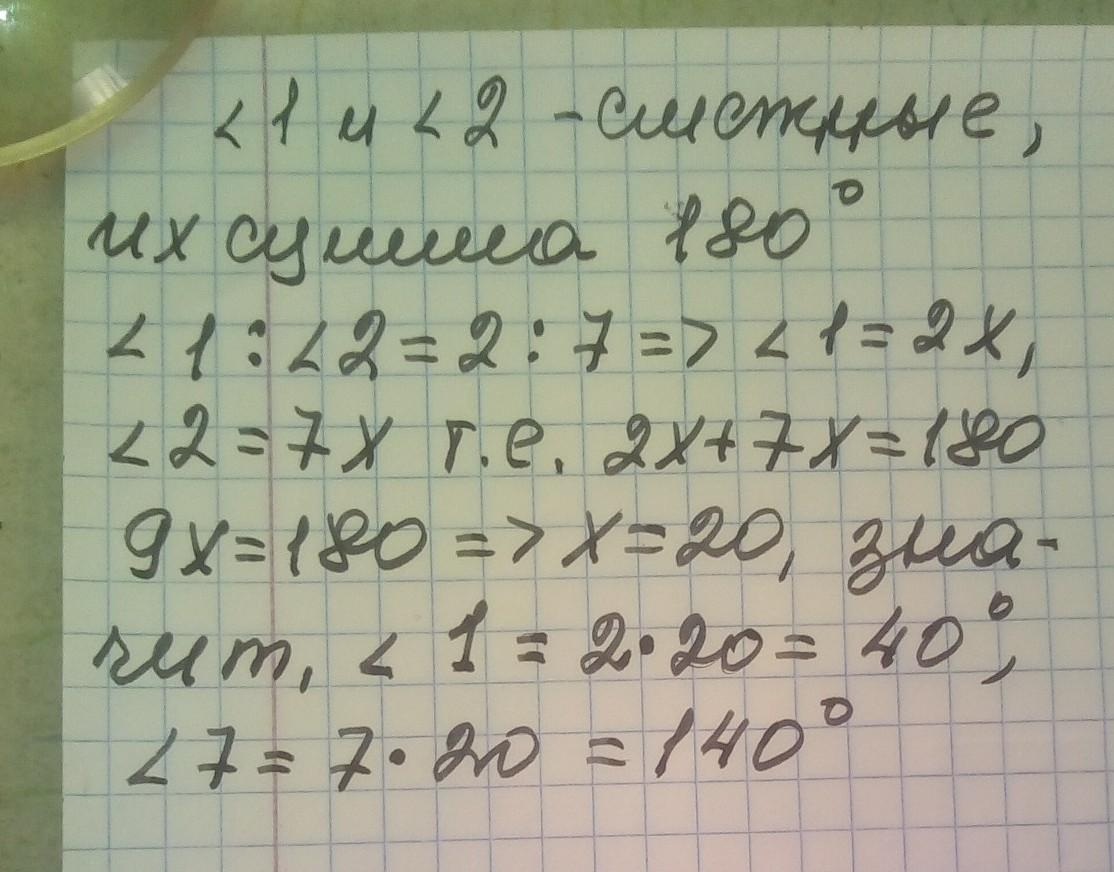 <1 и <2 - смежные,
их сумма 180°
<1 : <2 = 2 : 7 => <1 = 2x,
<2 = 7x т.е. 2x + 7x = 180
9x = 180 => x = 20, зна-
чит, <1 = 2 · 20 = 40°,
<7 = 7 · 20 = 140°